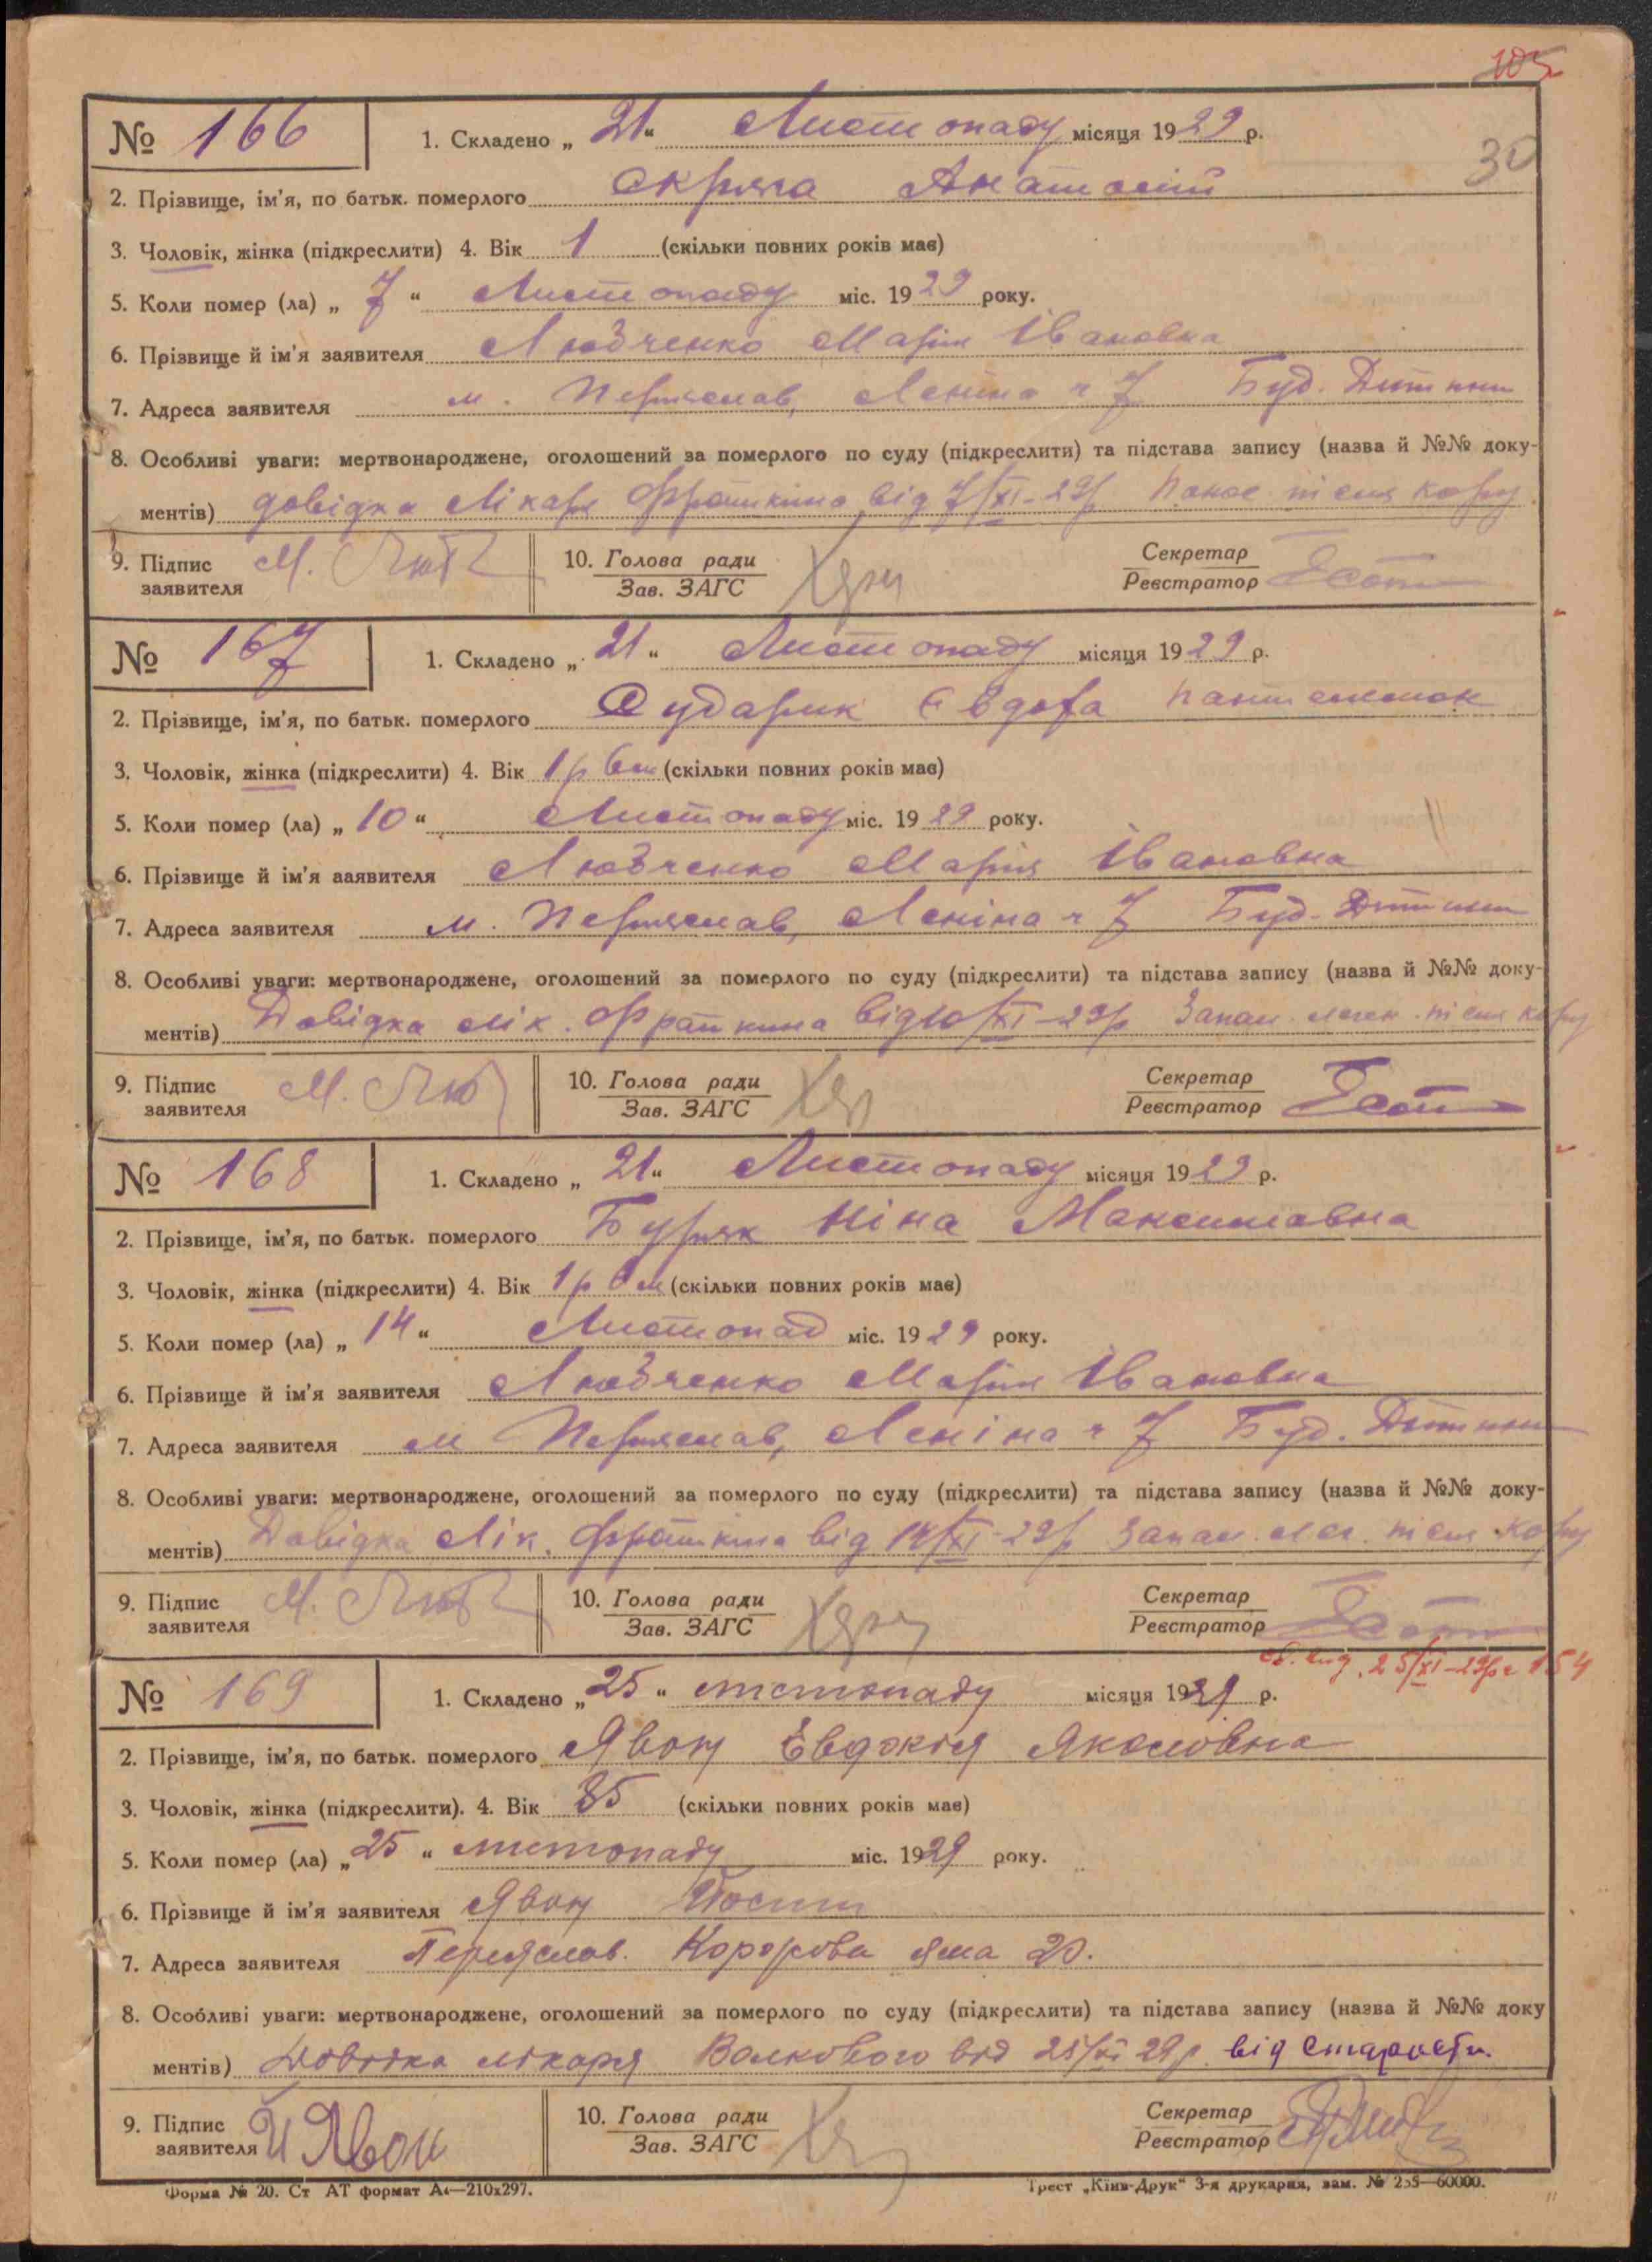 105
30
№ 166 1. Складено „ 21 “ Листопаду місяця 1929 р.
2. Прізвище, ім'я, по батьк. померлого Скряга Анатолій
3. Чоловік, жінка (підкреслити) 4. Вік 1 (скільки повних років має)
5. Коли помер (ла) „ 7 “ Листопаду міс. 1929 року.
6. Прізвище й ім'я заявителя Любченко Марія Івановна
7. Адреса заявителя м. Переяслав, Леніна ч 7 Буд. Дитини
8. Особливі уваги: мертвонароджене, оголошений за померлого по суду (підкреслити) та підстава запису (назва й №№ доку-
ментів) довідка Лікаря Фраткина від 7/XI-29р Понос після кору
9. Підпис заявителя М. Люб 10. Голова ради Зав. ЗАГС Секретар Реєстратор
№ 167 1. Складено „ 21 “ Листопаду місяця 1929 р.
2. Прізвище, ім'я, по батьк. померлого Сударик Євдоха
3. Чоловік, жінка (підкреслити) 4. Вік 1 р 6 м (скільки повних років має)
5. Коли помер (ла) „ 10 “ Листопаду міс. 1929 року.
6. Прізвище й ім'я заявителя Любченко Марія Івановна
7. Адреса заявителя м. Переяслав, Леніна ч 7 Буд. Дитини
8. Особливі уваги: мертвонароджене, оголошений за померлого по суду (підкреслити) та підстава запису (назва й №№ доку-
ментів) Довідка лік. Фраткина від 10/XI-29р Запал. леген. після кору
9. Підпис заявителя М. Люб 10. Голова ради Зав. ЗАГС Секретар Реєстратор
№ 168 1. Складено „ 21 “ Листопаду місяця 1929 р.
2. Прізвище, ім'я, по батьк. померлого Буряк Ніна Максимовна
3. Чоловік, жінка (підкреслити) 4. Вік 1 р 6 м (скільки повних років має)
5. Коли помер (ла) „ 14 “ Листопад міс. 1929 року.
6. Прізвище й ім'я заявителя Любченко Марія Івановна
7. Адреса заявителя м Переяслав, Леніна ч 7 Буд. Дитини
8. Особливі уваги: мертвонароджене, оголошений за померлого по суду (підкреслити) та підстава запису (назва й №№ доку-
ментів) Довідка Лік. Фраткина від 14/XI-29р Запал. лег. після кору
9. Підпис заявителя М. Люб 10. Голова ради Зав. ЗАГС Секретар Реєстратор
25/XI-29р
№ 169 1. Складено „ 25 “ листопаду місяця 1929 р.
2. Прізвище, ім'я, по батьк. померлого Явон Євдокія Якововна
3. Чоловік, жінка (підкреслити). 4. Вік 85 (скільки повних років має)
5. Коли помер (ла) „ 25 “ листопаду міс. 1929 року.
6. Прізвище й ім'я заявителя Явон Йосип
7. Адреса заявителя Переяслав. яма 20.
8. Особливі уваги: мертвонароджене, оголошений за померлого по суду (підкреслити) та підстава запису (назва й №№ доку
ментів) Довідка лікаря Волкового від 25/XI 29 р. від старости.
9. Підпис заявителя Й Явон 10. Голова ради Зав. ЗАГС Секретар Реєстратор
Форма № 20. Ст АТ формат А4—210х297. Трест „Київ-Друк“ 3-я друкарня, зам. № 255—60000.